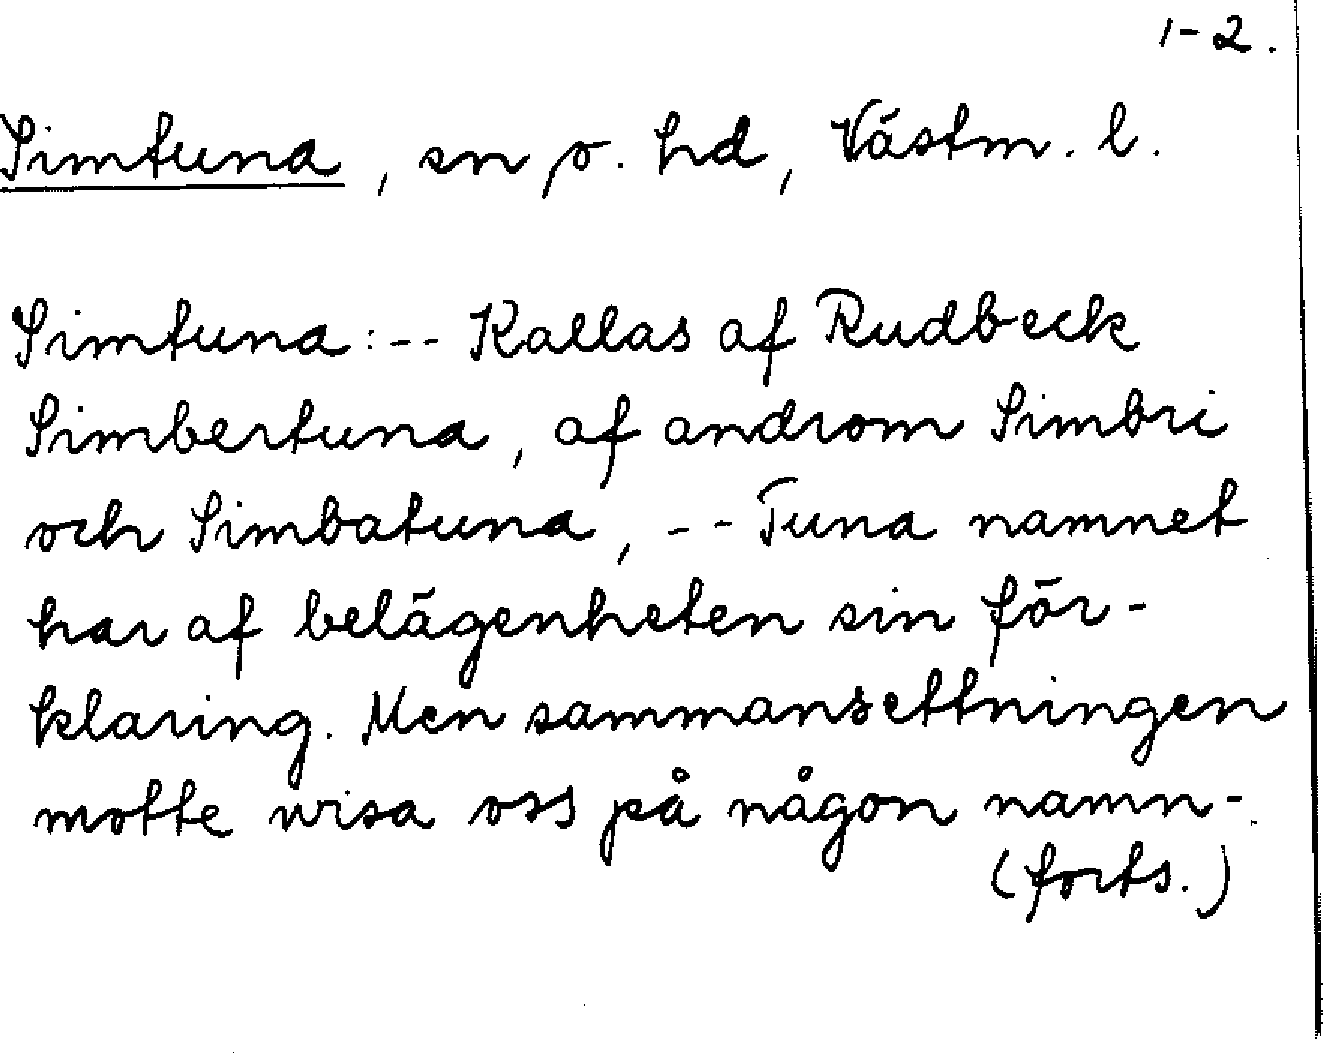 1-2.
Simtuna, sn o. hd, Västm. l.
Simtuna: -- Kallas af Rudbeck
Simbertuna, af androm Simbri
och Simbatuna, -- Tuna namnet
har af belägenheten sin för-
klaring. Men sammansettningen
motte wisa oss på någon namn-
(forts.)